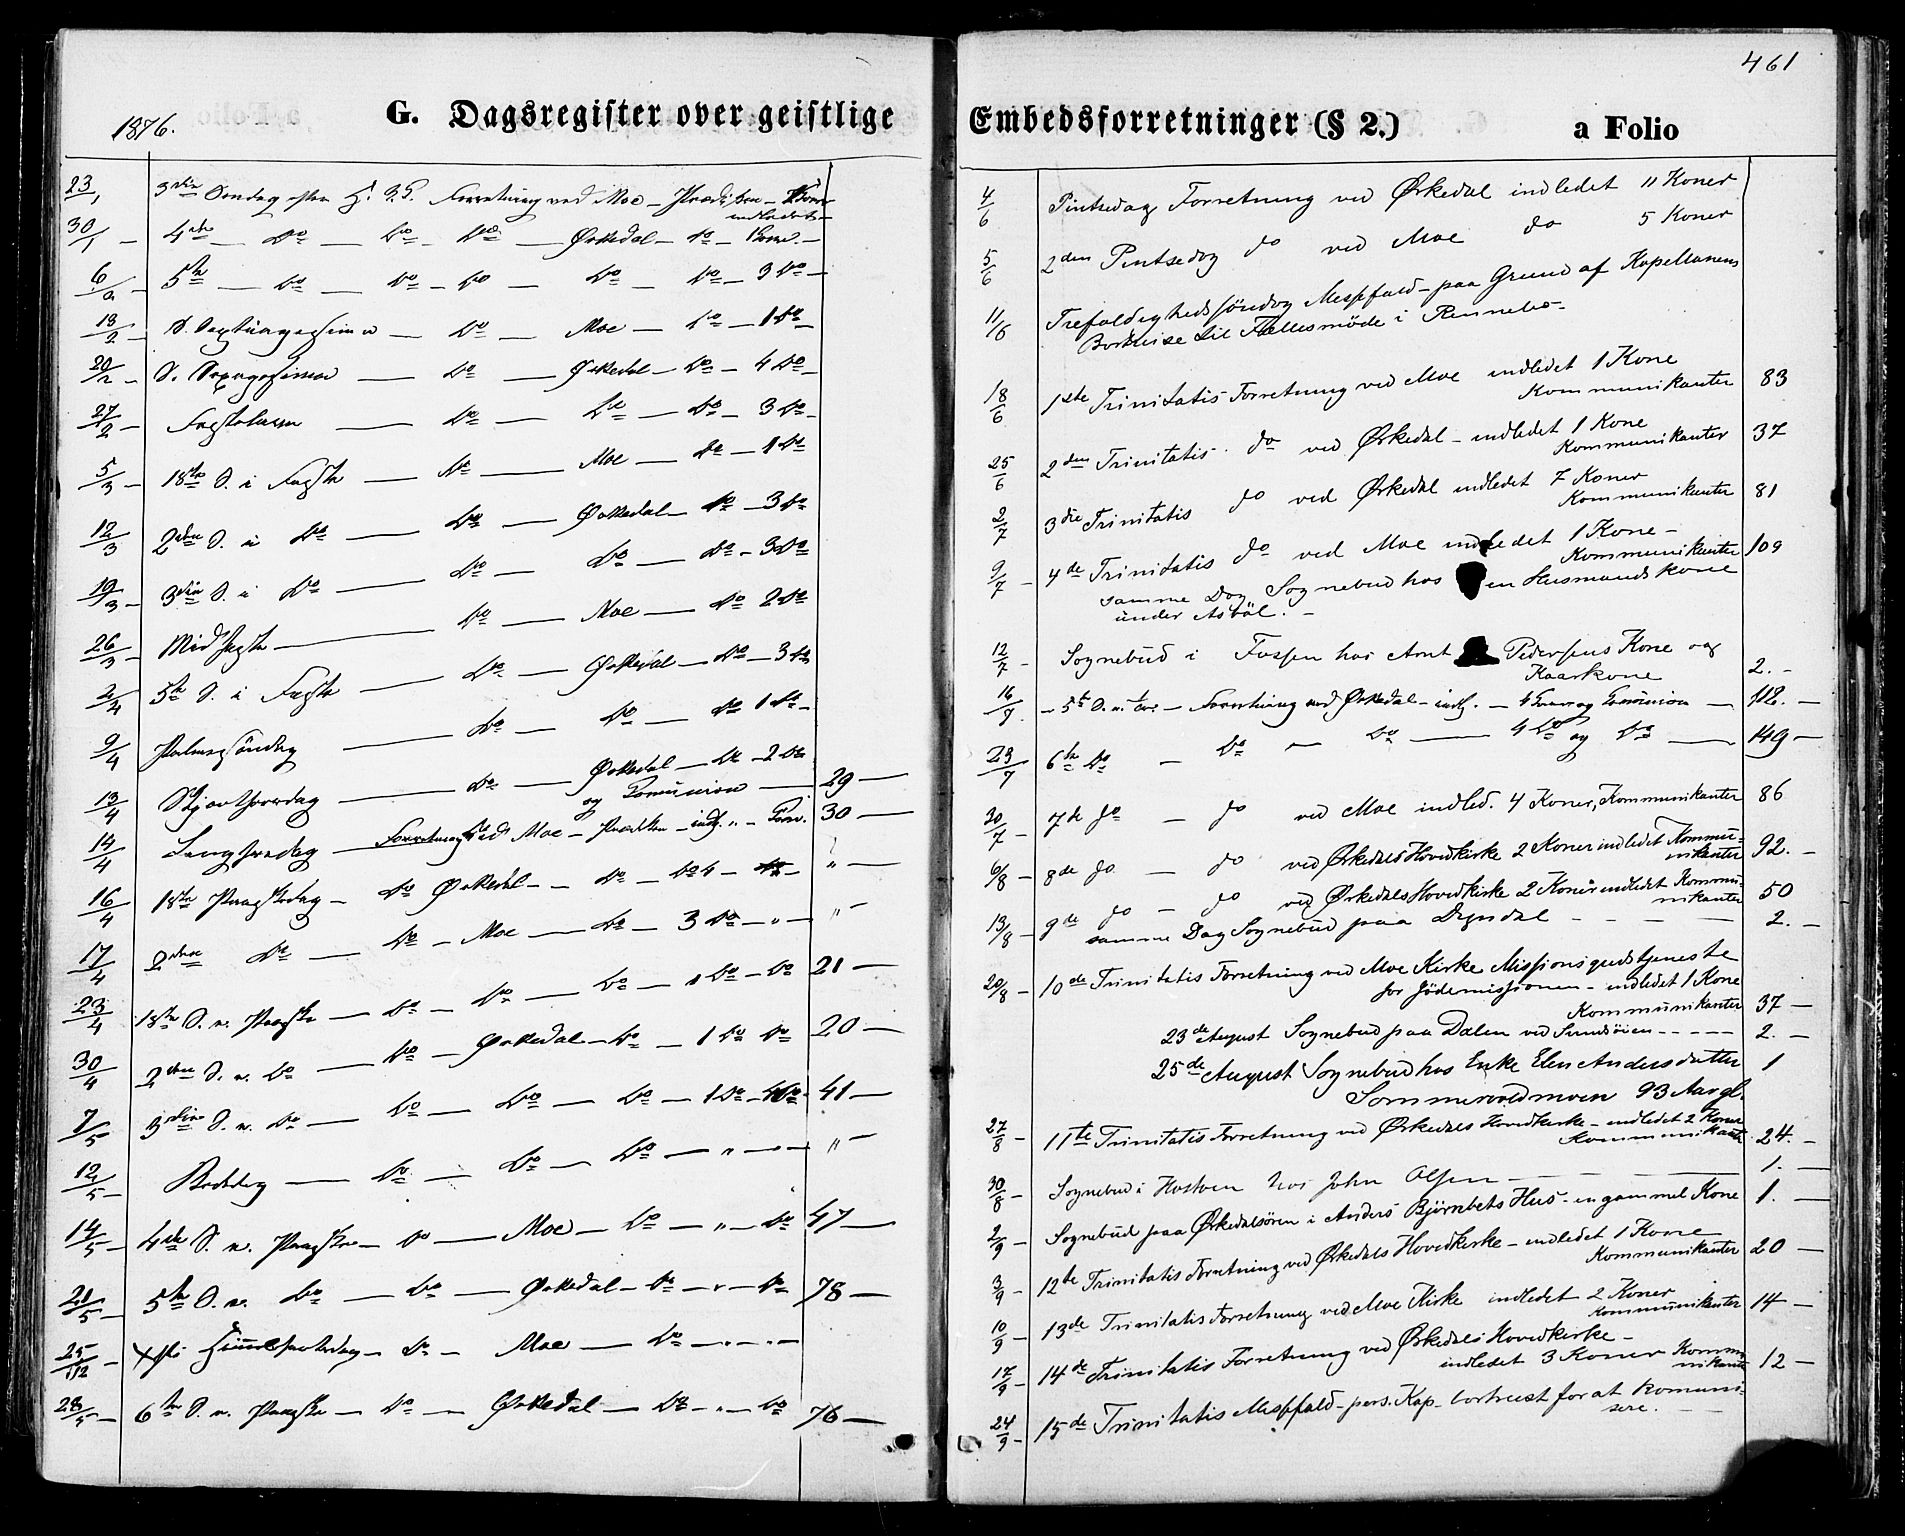 461
1876.
G. Dagsregister over geistlige
23/1 3die Søndag efter H. 3. K. Forretning ved Moe —
30/1 — 4de — do — do — do — Ørkedal — do — 1 Kone —
6/2 — 5te — do — do — do — do — do — 3 do —
13/2 — S. Septuagesima — do — Moe — do — 1 do —
20/2 — S. Sexagesima — do — Ørkedal — do — 4 do —
27/2 — Fastelavn — do — do — do — 3 do —
5/3 — 1ste S. i Faste — do — Moe — do — 1 do
12/3 2den S. i do — do — Ørkedal — do — 3 do
19/3 — 3die S. i do — do — do — do — 3 do
26/3 — Midfaste — do — Moe — do 2 do
2/4 5te S. i Faste — do — Ørkedal — do — 3 do
9/4 Palmesöndag — do — do — do 1 do —
13/4 Skjærthorsdag — do — Ørkedal — do — 2 do
og Comunion — 29 —
14/4 Langfredag — Forretning ved Moe — 30 —
16/4 1ste Paaskedag — do Ørkedal — do — do 4 „ —
17/4 2den do — do — Moe — do — 3 do — „ — „ —
23/4 1ste S. e. Paaske — do — do — do — 1 do — do 21 —
30/4 2den S. e. do — do — Ørkedal — do — 1 do do 20 —
7/5 3die S. e. do — do — do — do — 1 do — do 41 —
12/5 — Bededag — do — do — do — „ — „ — „ —
14/5 — 4de S. e. Paaske — do — Moe — do — „ — do 47 —
21/5 — 5te S. e. do — do — Ørkedal — do — „ — do 78 —
25/5 — Kristi Himmelfartsdag — do — Moe — do — „ — „ —
28/5 — 6te S. e. Paaske — do — Ørkedal — do — „ — do 76 —
Embedsforretninger (§ 2.) a Folio
4/6 Pintsedag Forretning ved Ørkedal indledet 11 Koner
5/6 2den Pintsedag do ved Moe do 5 Koner
11/6 Trefoldighedssöndag Messefald — paa Grund af Kapellanens
Bortreise til Fællesmöde i Rennebo —
18/6 1ste Trinitatis Forretning ved Moe indledet 1 Kone
Kommunikanter 83
25/6 2den Trinitatis do ved Ørkedal — indledet 1 Kone
Kommunikanter 37
2/7 3die Trinitatis do ved Ørkedal indledet 7 Koner
Kommunikanter 81
9/7 — 4de Trinitatis do ved Moe indledet 1 Kone —
Kommunikanter 109
samme Dag Sognebud hos en Husmandskone
under Asböl. —
12/7 — Sognebud i Fossen hos Arnt Pedersens Kone og
Kaarkone 2. —
16/7 — 5te S. e. Tr. — Forretning ved Ørkedal — indl. — 4 Koner og Comunion — 112. —
23/7 6te do — do — do — 4 do og do — 149 —
30/7 — 7de do — do ved Moe indled. 4 Koner, Kommunikanter 86
6/8 — 8de do — do ved Ørkedals Hovedkirke 2 Koner indledet Kommu-
nikanter 92. —
13/8 — 9de do — do ved Ørkedals Hovedkirke 2 Koner indledet Kommu-
nikanter 50
samme Dag Sognebud paa Dyrdal — — — — 2. —
20/8 — 10de Trinitatis Forretning ved Moe Kirke Missionsgudstjeneste
for Jödemissionen — indledet 1 Kone
Kommunikanter 37 —
23de August Sognebud paa Dalen ved — — — — 2. —
25de August Sognebud hos Enke Elen Andersdatter 1
93 Aar gl.
27/8 — 11te Trinitatis Forretning ved Ørkedals Hovedkirke — indledet 2 Koner
Kommunikanter 24. —
30/8 — Sognebud i Hostoen hos John Olsen — — — 1. —
2/9 — Sognebud paa Ørkedalsören i Anders Björnbets Hus — en gammel Kone 1. —
3/9 — 12te Trinitatis Forretning ved Ørkedals Hovedkirke — indledet 1 Kone
Kommunikanter 20 —
10/9 — 13de Trinitatis Forretning ved Moe Kirke indledet 2 Koner
Kommunikanter 14 —
17/9 — 14de Trinitatis Forretning ved Ørkedals Hovedkirke —
indledet 3 Koner Kommu-
nikanter 12 —
24/9 — 15de Trinitatis Messefald — pers. Kap. bortreist for at komuni-
sere. —